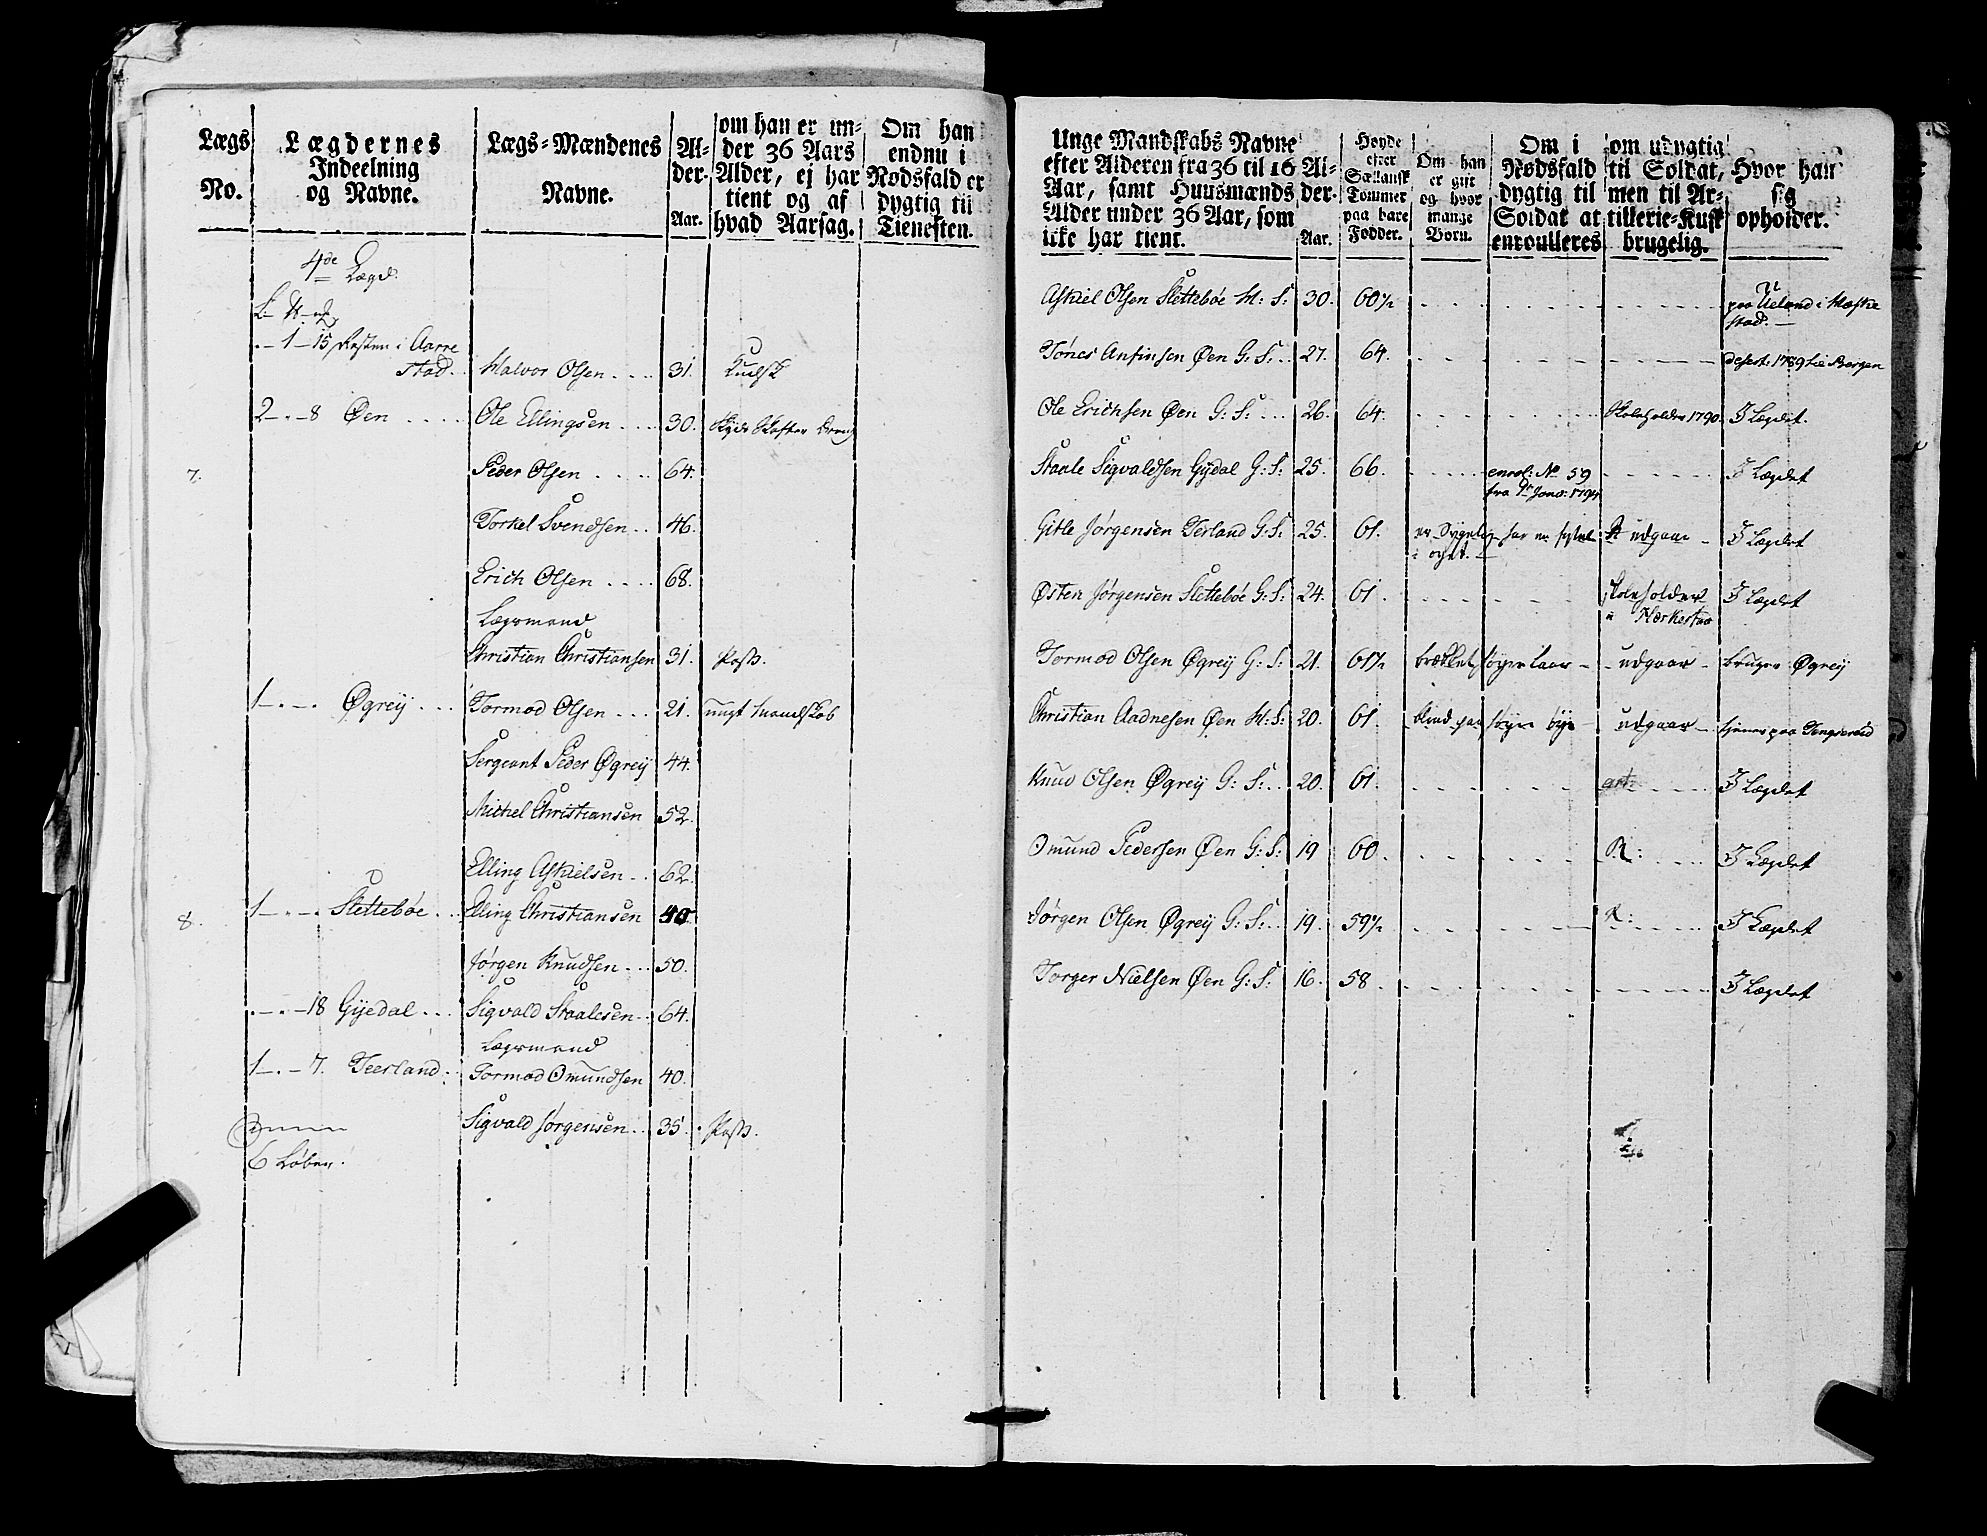 Lægs No.
Lægdernes Indeelning og Navne.
Lægs-Mændenes Navne.
Al-der. Aar.
om han er un-der 36 Aars Alder, ej har tient og af hvad Aarsag.
Om han endnu i Nødsfald er dygtig til Tienesten.
4de Lægd.
1 - 15 Resten i Aarre
stad. Halvor Olsen 31. Kudsk
2 - 8 Øen Ole Ellingsen 30.
7. Peder Olsen 64.
Torkel Svendsen 46.
Erich Olsen 68.
Lægsmand
Christian Christiansen 31. Postb.
1 Øgreÿ Tormod Olsen 21. ungt Mandskab
Sergeant Peder Øgreÿ 44.
Michel Christiansen 52.
Elling Askielsen 62.
8. 1 Slettebøe Elling Christiansen 40
Jørgen Knudsen 50.
18 Gÿedal Sigvald Staalesen 64.
Lægsmand
1 - 7. Teerland Tormod Omundsen 40.
Sigvald Jørgensen 35. Postb.
6 Løber.
Unge Mandskabs Navne efter Alderen fra 36 til 16 Aar, samt Huusmænds Alder under 36 Aar, som icke har tient.
Al-der. Aar.
Høyde efter Siællansk Tommer paa bare Fødder.
Om han er gift og hvor mange Børn.
Om i Nødsfald dygtig til Soldat at enroulleres
om udygtig til Soldat, men til Ar-tillerie-Kusk brugelig.
Hvor han sig opholder.
Askiel Olsen Slettebøe H: S: 30. 60½ paa Ueland i Hæske
stad.
Tönes Anfinsen Øen G: S: 27. 64. desert: 1789 til Bergen
Ole Erichsen Øen G: S: 26. 64. Skoleholder 1790. I Lægdet.
Staale Sigvaldsen Gÿdal G: S: 25. 66. enrol: No 59 I Lægdet
Gitle Jørgensen Terland G: S: 25. 61. udgaar I Lægdet
Østen Jørgensen Slettebøe G: S: 24. 61. skoleholder I Lægdet
Tormod Olsen Øgreÿ G: S: 21. 61½ brækket høyre Laar udgaar bruger Øgreÿ
Christian Aadnesen Øen H: S: 20. 61. blind paa høyre øye udgaar tjener paa Tengsereid
Knud Olsen Øgreÿ G: S: 20. 61. art: I Lægdet
Omund Pedersen Øen G: S: 19 60. R: I Lægdet
Jørgen Olsen Øgreÿ G: S: 19. 59½ R: I Lægdet
Torger Nielsen Øen G: S: 16. 58. I Lægdet